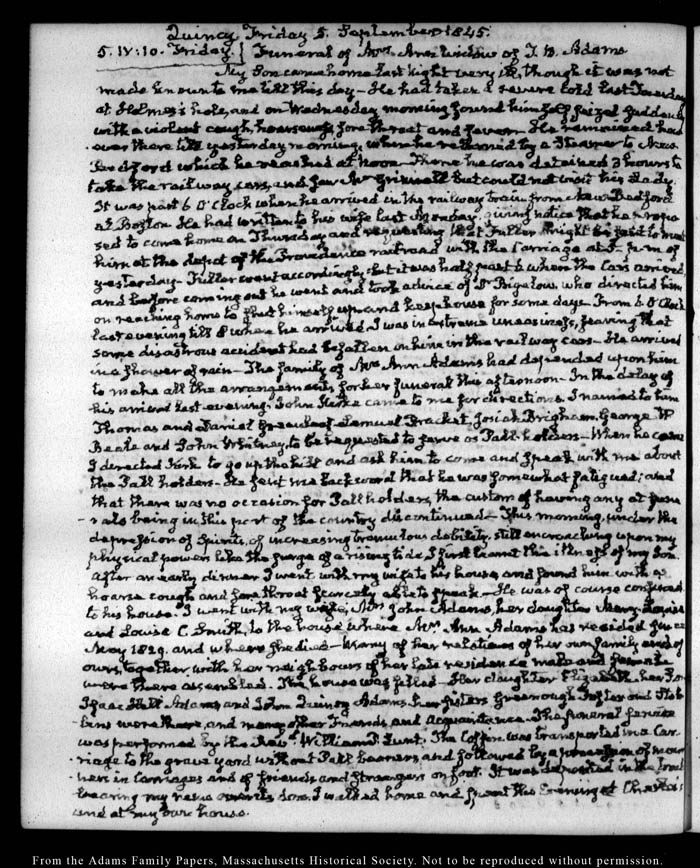 Quincy Friday 5. September 1845.
5. IV:10. Friday. } Funeral of Mrs. Ann widow of T. B. Adams
My Son came home last night very ill, though it was not
made known to me till this day — He had taken a severe cold last Tuesday
at Holmes's hole, and on Wednesday morning found himself seized suddenly
with a violent cough, hoarseness, sore throat and fever. He remained how-
ever there till yesterday morning, when he returned by a Steamer to New-
Bedford which he reached at noon. There he was detained 3 hours to
take the railway cars, and saw Mr Grinnell but could not visit his Lady.
It was past 6 O'Clock when he arrived in the railway train from New Bedford
at Boston. He had written to his wife last Monday, giving notice that he propo-
sed to come home on Thursday and requesting that Fuller might be sent to meet
him at the depot of the Providence railroad with the Carriage at 5. p.m of
yesterday. Fuller went accordingly, but it was half past 6 when the Cars arrived
and before coming out he went and took advice of Dr Bigelow who directed him
on reaching home to shut himself up and keep house for some days. From 6 O'Clock
last evening till 8 when he arrived I was in extreme uneasiness, fearing that
some disastrous accident had befallen him in the railway cars — He arrived
in a shower of rain — The family of Mrs Ann Adams had depended upon him
to make all the arrangements for her funeral this afternoon — In the delay of
his arrival last evening, John Kirke came to me for directions. I named to him
Thomas and Daniel Greenleaf, Samuel Brackett, Josiah Brigham, George W
Beale and John Whitney, to be requested to serve as Pall-holders — When he came
I directed Kirk to go up the hill and ask him to come and speak with me about
the Pall holders — He sent me back word that he was somewhat fatigued; and
that there was no occasion for Pall holders, the custom of having any at fune-
rals being in this part of the country discontinued — This morning, under the
depression of Spirits, of increasing tremulous debility, still encroaching upon my
physical powers like the surge of a rising tide, I first learnt this illness of my Son.
After an early dinner I went with my wife to his house, and found him with a
hoarse cough and sore throat scarcely able to speak — He was of course confined
to his house. I went with my wife, Mrs John Adams, her daughter Mary Louisa
and Louisa C. Smith, to the house where Mrs Ann Adams has resided since
May 1829. and where she died — Many of her relations of her own family and of
ours, together with her neighbours of her late residence male and female
were there assembled. The house was filled — Her daughter Elizabeth, her Sons
Isaac Hull Adams and John Quincy Adams, her sisters Greenough, Foster and
were there, and many other Friends and Acquaintance. The funeral service
was performed by the Revd William P. Lunt. The Coffin was transported in a Car-
riage to the grave yard without Pall bearers, and followed by a procession of mour-
ners in carriages and of friends and strangers on foot. It was deposited in the tomb
bearing my name over its door. I walked home and spent the Evening at Charles's
and at my own house.
From the Adams Family Papers, Massachusetts Historical Society. Not to be reproduced without permission.